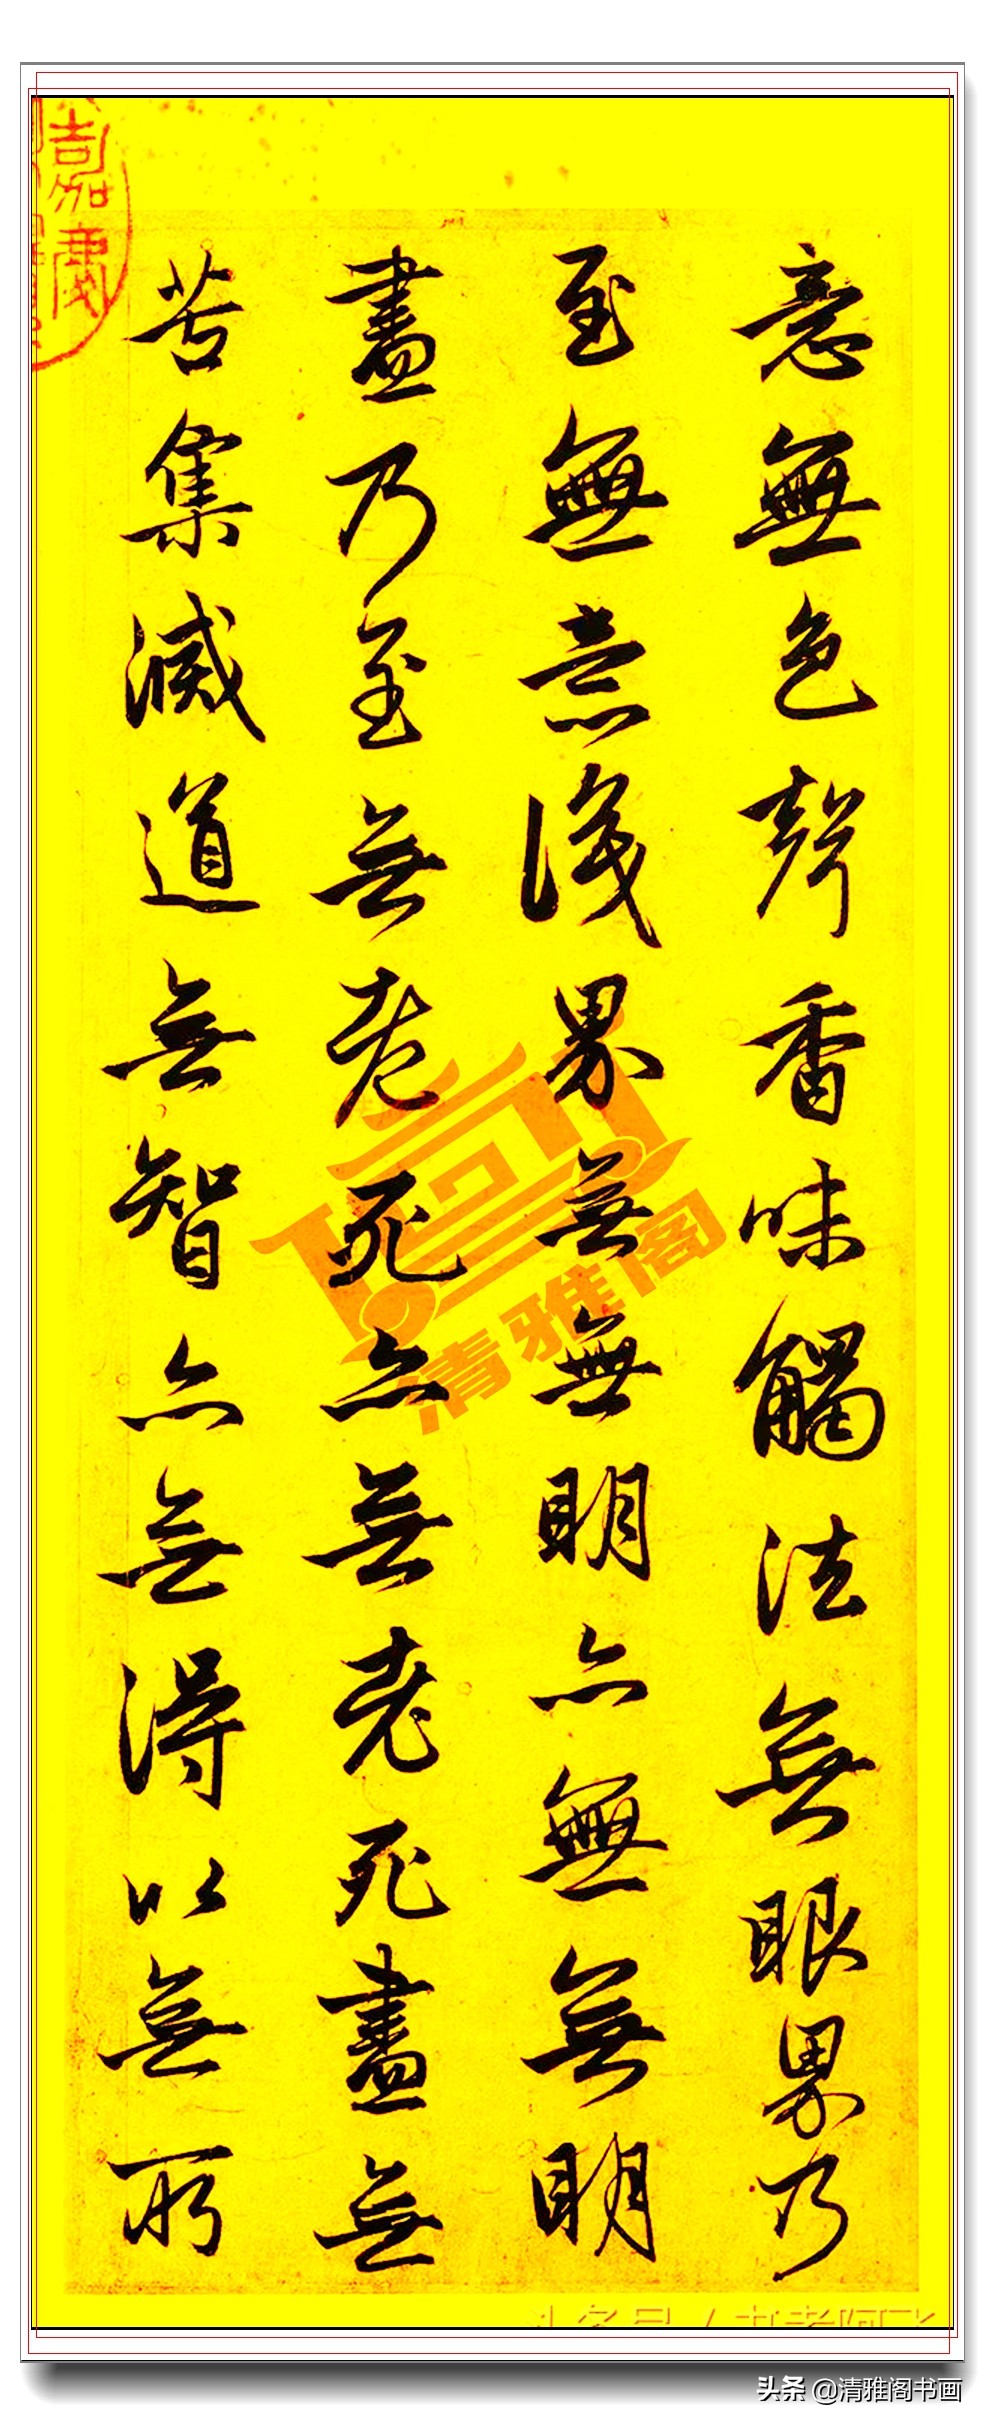 意無色聲香味觸法無眼界乃
至無意識界無無明亦無無明
盡乃至無老死亦無老死盡無
苦集滅道無智亦無得以無所
嘉慶
清雅阁
头条 @清雅阁书画